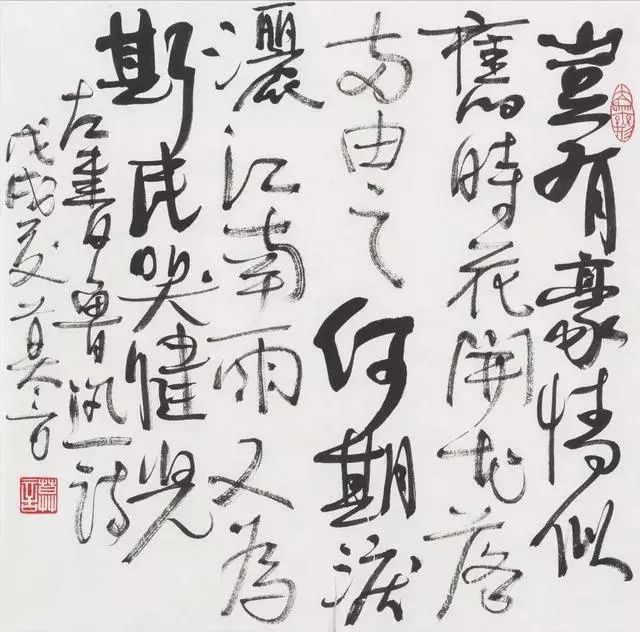 豈有豪情似
舊時花開花落
兩由之何期淚
灑江南雨又為
斯民哭健兒
左書魯迅詩
戊戌夏莫言